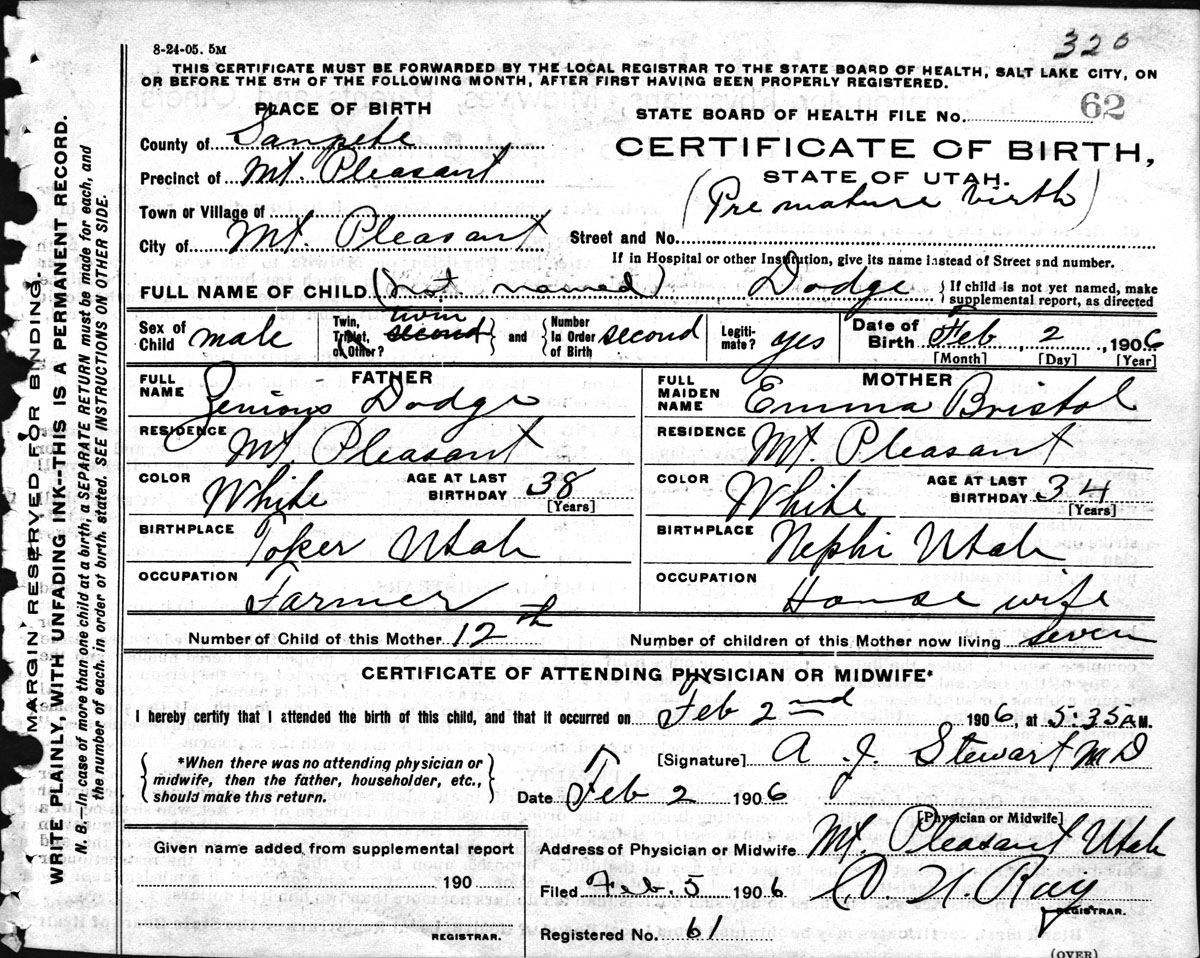 320
8-24-05. 5M
THIS CERTIFICATE MUST BE FORWARDED BY THE LOCAL REGISTRAR TO THE STATE BOARD OF HEALTH, SALT LAKE CITY, ON
OR BEFORE THE 5TH OF THE FOLLOWING MONTH, AFTER FIRST HAVING BEEN PROPERLY REGISTERED.
PLACE OF BIRTH
STATE BOARD OF HEALTH FILE No. 62
County of Sanpete
CERTIFICATE OF BIRTH,
Precinct of Mt. Pleasant
STATE OF UTAH.
(Premature birth)
Town or Village of
City of Mt. Pleasant
Street and No.
If in Hospital or other Institution, give its name instead of Street and number.
FULL NAME OF CHILD (Not named) Dodge { If child is not yet named, make supplemental report, as directed
Sex of Child male
Twin, Triplet, or Other? twin second and Number In Order of Birth second
Legitimate? yes
Date of Birth Feb 2, 1906
[Month] [Day] [Year]
FATHER
FULL NAME Dodge
RESIDENCE Mt. Pleasant
COLOR White AGE AT LAST BIRTHDAY 38 [Years]
BIRTHPLACE Toker Utah
OCCUPATION Farmer
MOTHER
FULL MAIDEN NAME Emma Bristol
RESIDENCE Mt Pleasant
COLOR White AGE AT LAST BIRTHDAY 34 [Years]
BIRTHPLACE Nephi Utah
OCCUPATION House wife
Number of Child of this Mother 12th Number of children of this Mother now living seven
CERTIFICATE OF ATTENDING PHYSICIAN OR MIDWIFE*
I hereby certify that I attended the birth of this child, and that it occurred on Feb 2nd 1906, at 5:35 A M.
*When there was no attending physician or
midwife, then the father, householder, etc.,
should make this return.
[Signature] A. J. Stewart MD
[Physician or Midwife]
Date Feb 2 1906
Address of Physician or Midwife Mt. Pleasant Utah
Given name added from supplemental report
190
REGISTRAR.
Filed Feb. 5 1906 Ray
REGISTRAR.
Registered No. 61
(OVER)
MARGIN RESERVED FOR BINDING.
WRITE PLAINLY, WITH UNFADING INK--THIS IS A PERMANENT RECORD.
N. B.—In case of more than one child at a birth, a SEPARATE RETURN must be made for each, and
the number of each, in order of birth, stated. SEE INSTRUCTIONS ON OTHER SIDE.